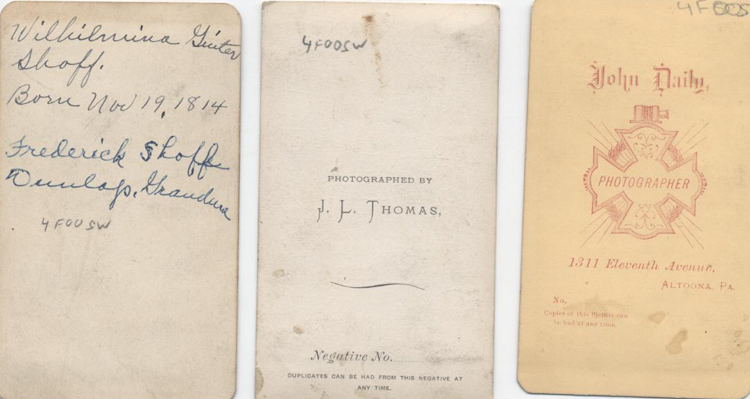 Wilhilmina Ginter
Shoff.
Born Nov 19, 1814
Frederick Shoff
Dunlap, Grandma
4F00SW
4F00SW
PHOTOGRAPHED BY
J. L. THOMAS,
Negative No.
DUPLICATES CAN BE HAD FROM THIS NEGATIVE AT
ANY TIME.
4F00S
John Daily,
PHOTOGRAPHER
1311 Eleventh Avenue.
ALTOONA, PA.
No.
Copies of this Picture can
be had at any time.